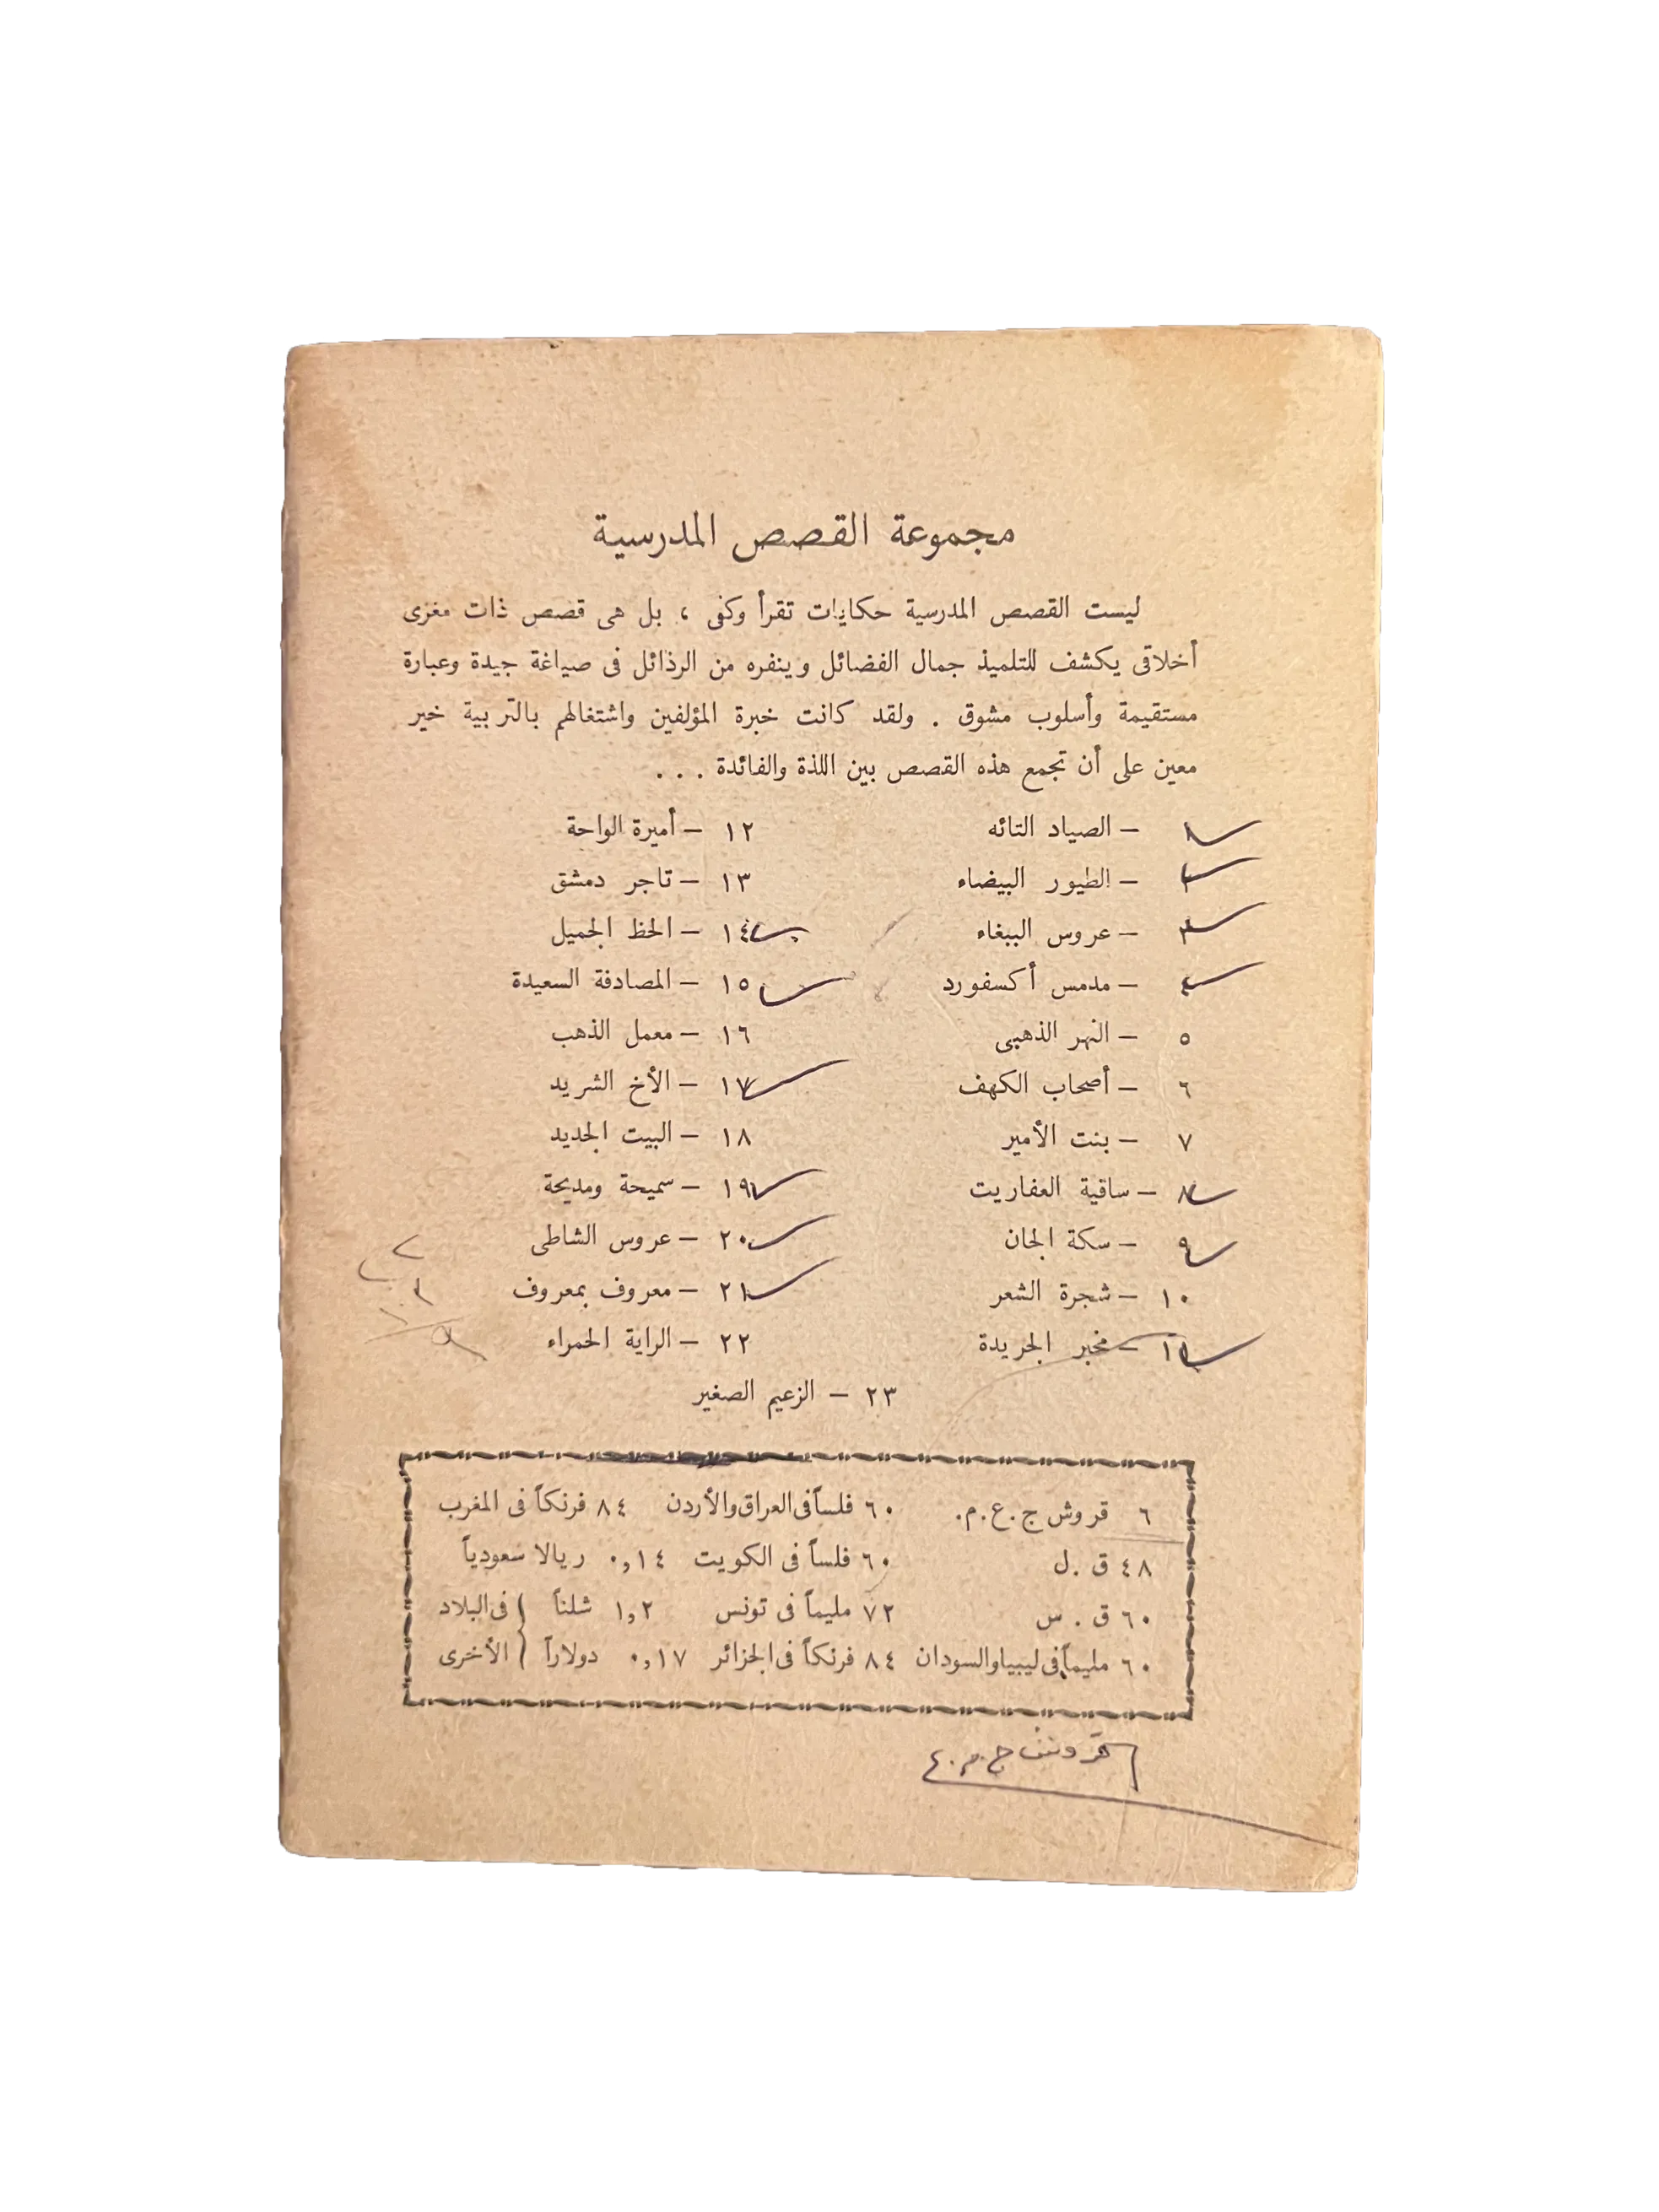 مجموعة القصص المدرسية
ليست القصص المدرسية حكايات تقرأ وكفى ، بل هى قصص ذات مغزى
أخلاقى يكشف للتلميذ جمال الفضائل وينفره من الرذائل فى صياغة جيدة وعبارة
مستقيمة وأسلوب مشوق . ولقد كانت خبرة المؤلفين واشتغالهم بالتربية خير
معين على أن تجمع هذه القصص بين اللذة والفائدة . . .
١ – الصياد التائه
٢ – الطيور البيضاء
٣ – عروس الببغاء
٤ – مدمس أكسفورد
٥ – النهر الذهبى
٦ – أصحاب الكهف
٧ – بنت الأمير
٨ – ساقية العفاريت
٩ – سكة الجان
١٠ – شجرة الشعر
١١ – مخبر الجريدة
١٢ – أميرة الواحة
١٣ – تاجر دمشق
١٤ – الحظ الجميل
١٥ – المصادفة السعيدة
١٦ – معمل الذهب
١٧ – الأخ الشريد
١٨ – البيت الجديد
١٩ – سميحة ومديحة
٢٠ – عروس الشاطى
٢١ – معروف بمعروف
٢٢ – الراية الحمراء
٢٣ – الزعيم الصغير
٦ قروش ج.ع.م. ٦٠ فلساً فى العراق والأردن ٨٤ فرنكاً فى المغرب
٤٨ ق . ل ٦٠ فلساً فى الكويت ٠,١٤ ريالا سعودياً
٦٠ ق . س ٧٢ مليماً فى تونس ١,٢ شلناً } فى البلاد
٦٠ مليماً فى ليبيا والسودان ٨٤ فرنكاً فى الجزائر ٠,١٧ دولاراً } الأخرى
٦ قروش ج.م.ع